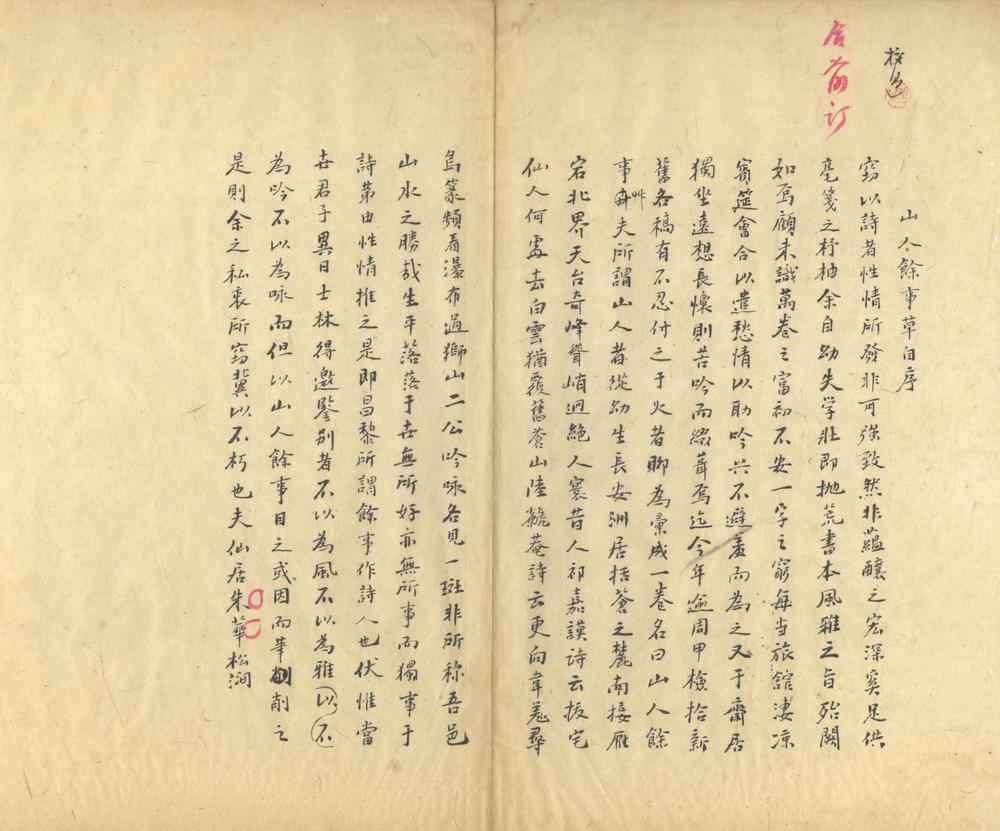 校迄
山人餘事草自序
竊以詩者性情所發非可強致然非蘊釀之宏深奚足供
毫箋之杼柚余自幼失学壯即抛荒書本風雅之旨殆闕
如焉顧未識萬卷之富初不安一字之窮每当旅舘凄凉
賓筵會合以遣愁情以助吟兴不避羞而為之又于齋居
獨坐遠想長懷則苦吟而綴葺焉迄今年逾周甲檢拾新
舊各稿有不忍付之于火者聊為彙成一卷名曰山人餘
事艸夫所謂山人者從幼生長安洲居括蒼之麓南接雁
宕北界天台奇峰聳峭迥絕人寰昔人祁嘉謨詩云拔宅
仙人何處去白雲猶覆舊蒼山陸虩菴詩云更向韋羌尋
鳥篆頻看瀑布過獅山二公吟咏各見一斑非所称吾邑
山水之勝哉生平落落于世無所好亦無所事而獨事于
詩苐由性情推之是即昌黎所謂餘事作詩人也伏惟當
世君子異日士林得邀鑒别者不以為風不以為雅以不
為吟不以為咏而但以山人餘事目之或因而筆削之
是則余之私衷所竊冀以不朽也夫仙居朱華松澗